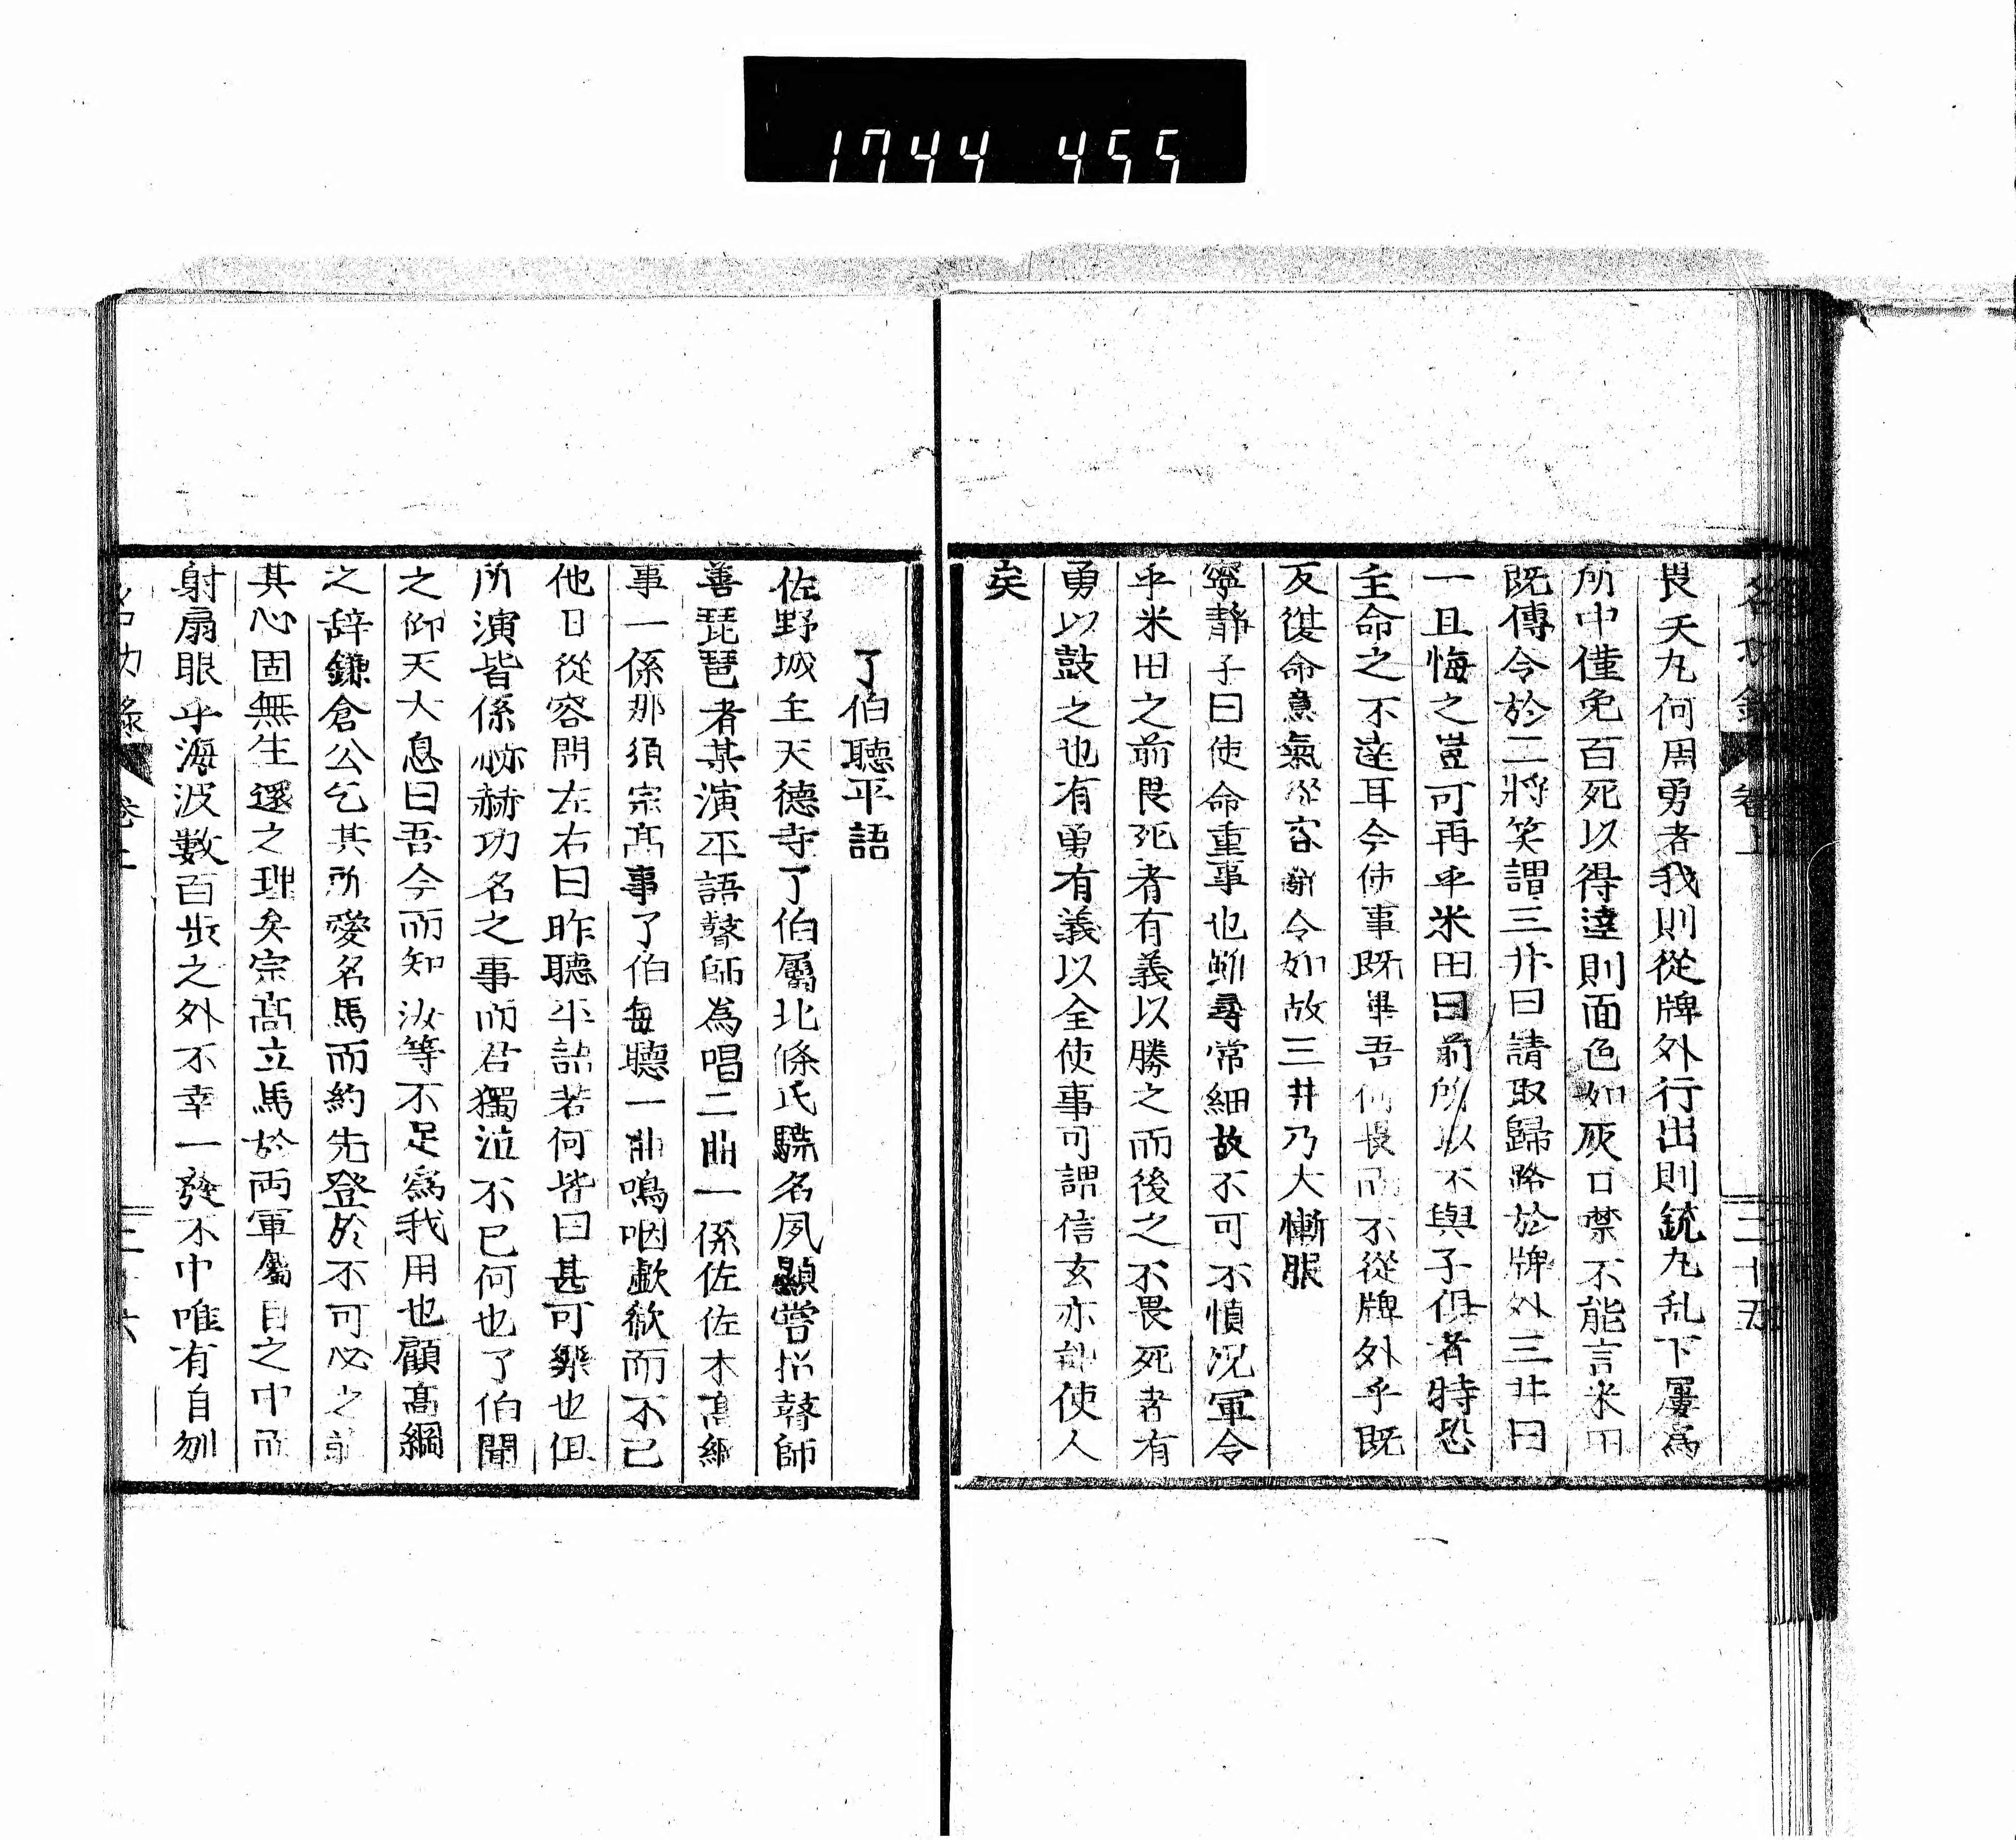 1744 455
畏天丸何用勇者我則從牌外行出則銃丸乱下屢為
所中僅免百死以得達則面色如灰口禁不能言米田
既傳令於二將笑謂三井曰請取歸路於牌外三井曰
一且悔之豈可再乎米田曰前所以不與子俱者特恐
主命之不達耳今使事既畢吾何畏而不從牌外乎既
反復命意氣從容辭令如故三井乃大慚服
寧靜子曰使命重事也雖尋常細故不可不慎况軍令
乎米田之前畏死者有義以勝之而後之不畏死者有
勇以鼓之也有勇有義以全使事可謂信玄亦能使人
矣
了伯聽平語
佐野城主天德寺了伯屬北條氏驍名夙顯嘗招瞽師
善琵琶者某演平語瞽師為唱二曲一係佐佐木高綱
事一係那須宗高事了伯每聽一曲鳴咽歔欷而不已
他日從容問左右曰昨聽平語若何皆曰甚可樂也但
所演皆係赫赫功名之事而君獨泣不已何也了伯聞
之仰天大息曰吾今而知汝等不足為我用也顧高綱
之辞鎌倉公乞其所愛名馬而約先登於不可必之前
其心固無生還之理矣宗高立馬於両軍屬目之中而
射扇眼乎海波數百步之外不幸一發不中唯有自刎